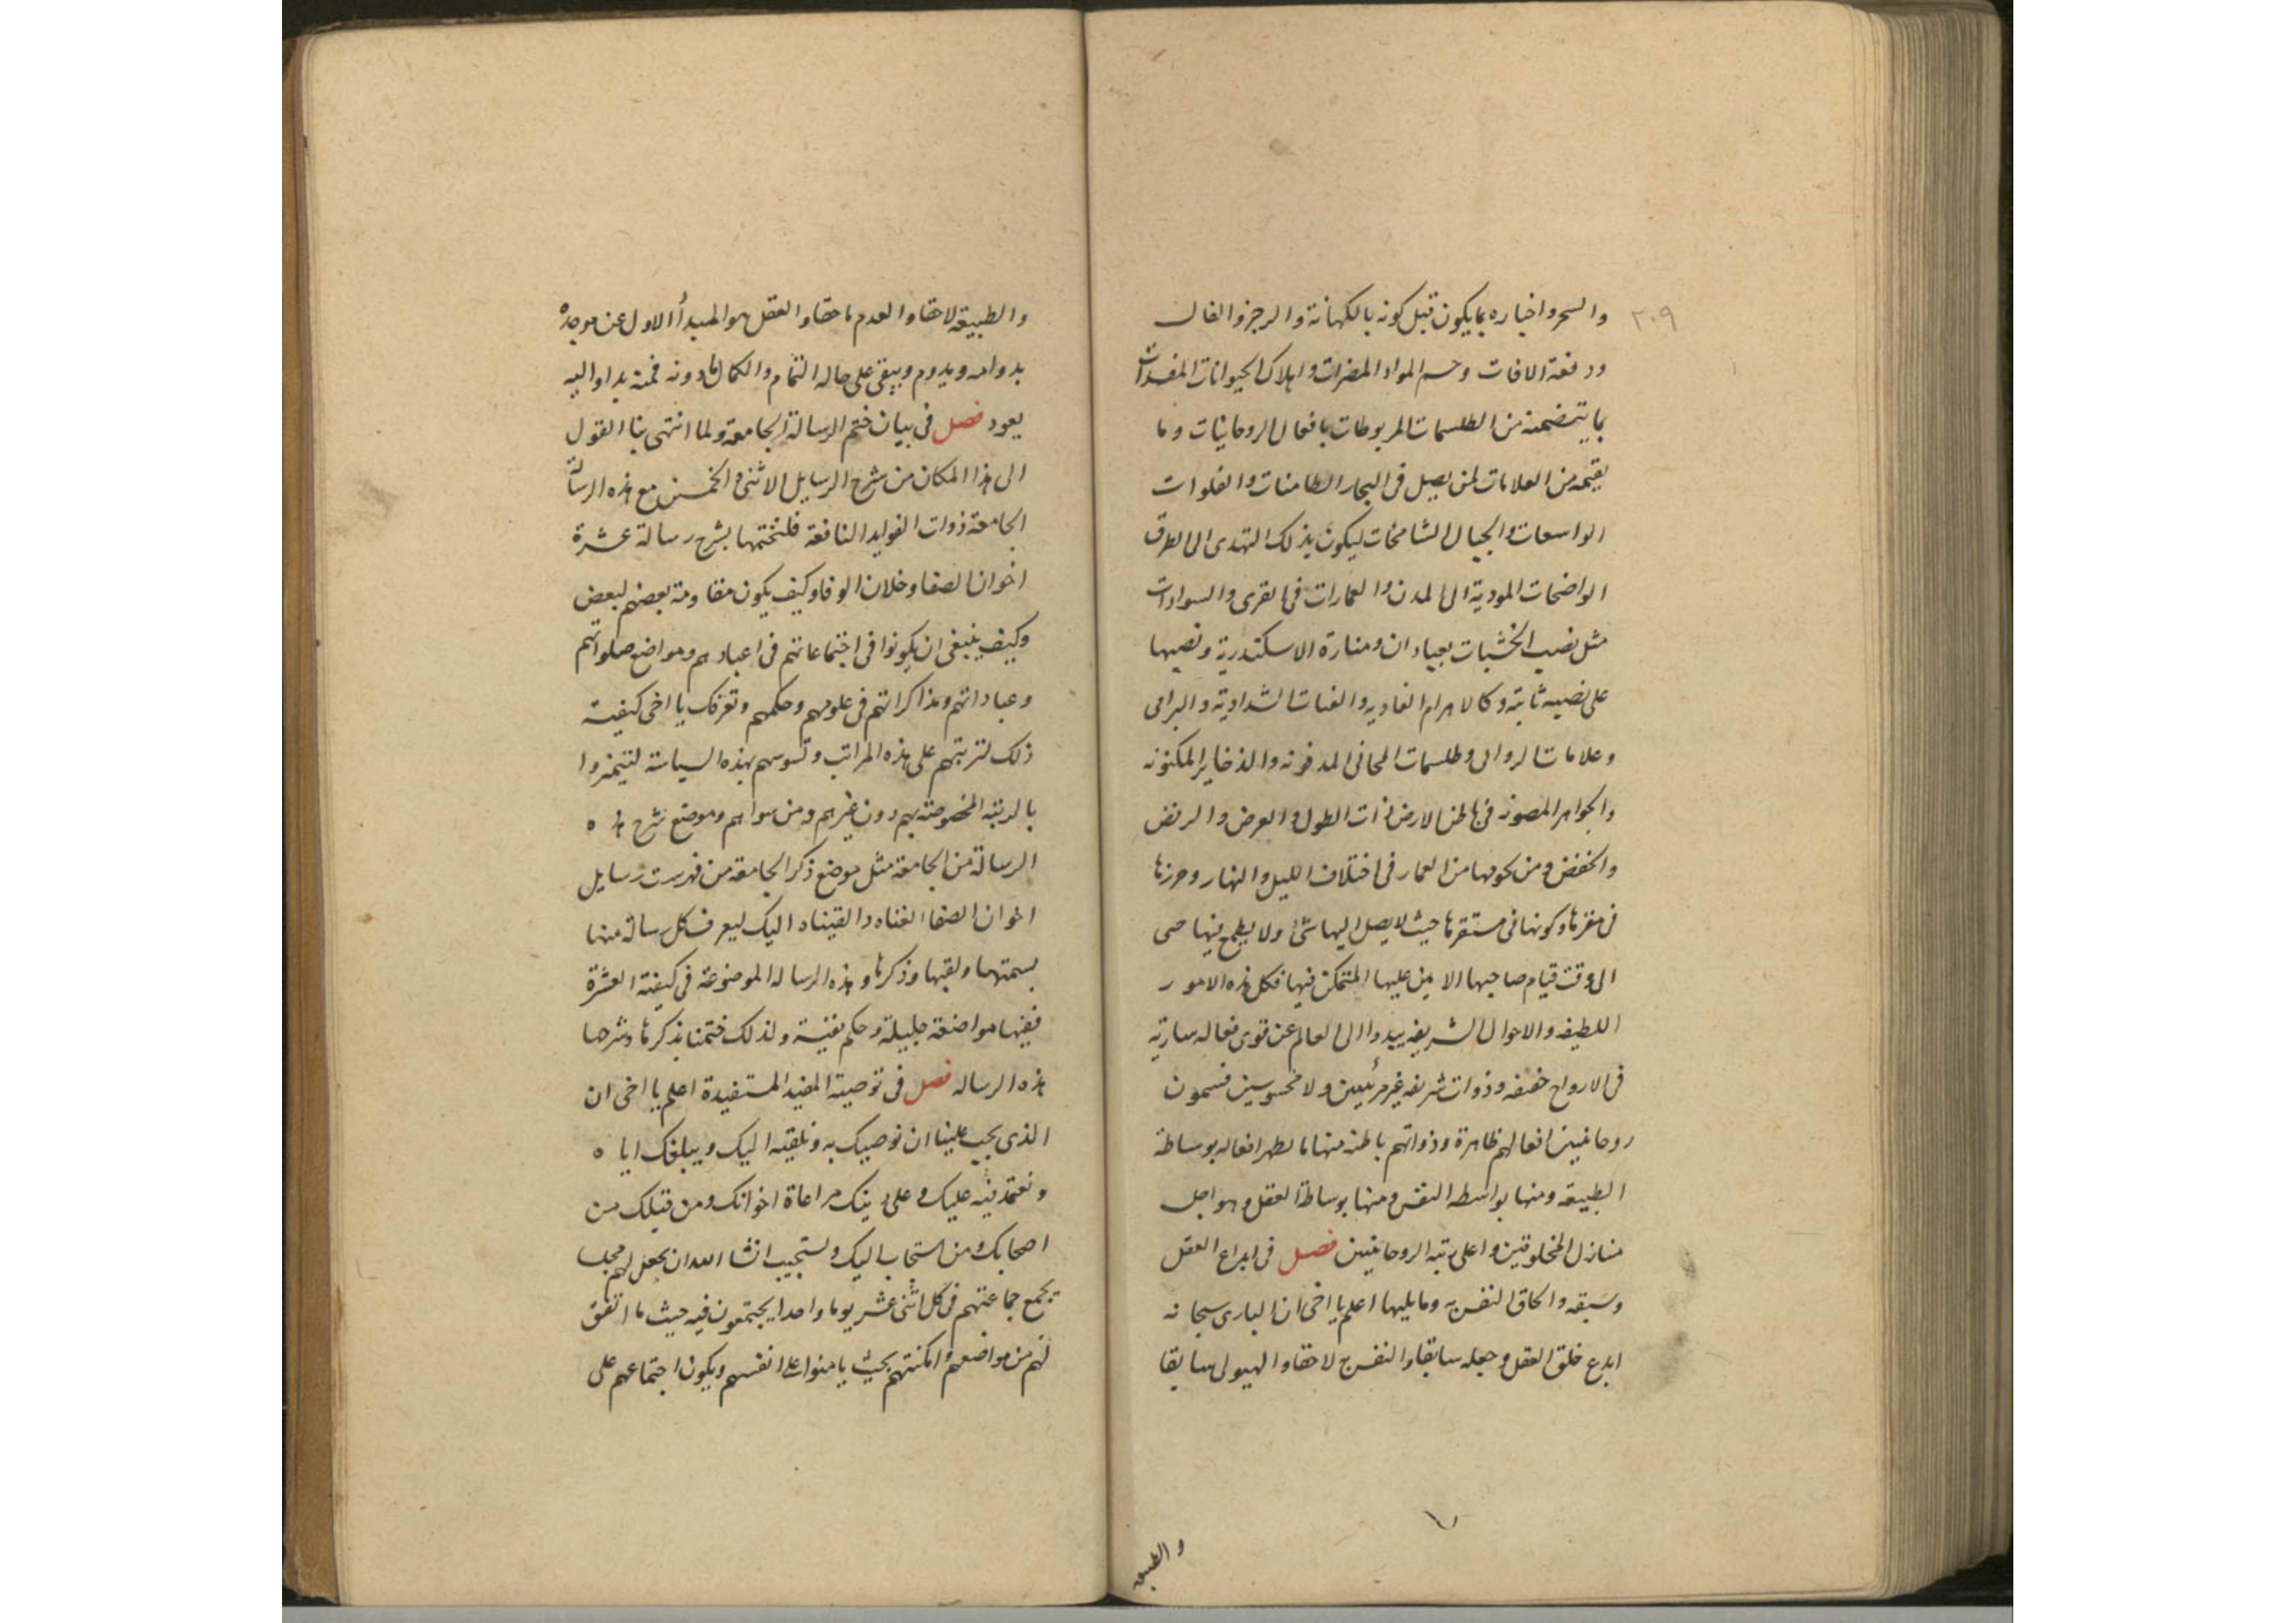 ٢٠٩
والسحر واخباره بما يكون قبل كونه بالكهانة والزجر والفال
ودفعه الافات وحسم المواد المضرات واهلاك الحيوانات المفسدات
بما يتضمنه من الطلسمات المربوطات بافعال الروحانيات وما
يقيمه من العلامات لمن يصل فى البحار الطامنات والفلوات
الواسعات والجبال الشامخات ليكون بذلك التهدى الى الطرق
الواضحات المودية الى المدن والعمارات فى القرى والسوادات
مثل نصب الخشبات بعبادان ومنارة الاسكندرية ونصبها
على نصبه ثابته وكالاهرام العاديه و الشدادية والبرابى
وعلامات وطلسمات المدفونه والذخاير المكنونه
والجواهر المصونه فى باطن الارض ذات الطول والعرض والرفض
والخفض ومن العمار فى اختلاف الليل والنهار وحرزها
فى مقرها وكونها فى مستقرها حيث لا يصل اليها شئ ولا يطمع فيها حى
الى وقت قيام صاحبها الامين عليها المتمكن فيها فكل هذه الامور
اللطيفه والاحوال الشريفه يبدوا الى العالم عن قوى فعاله ساريه
فى الارواح خفيفه وذوات شريفه غير مرئيين ولا محسوسين فسمون
روحانيين افعالهم ظاهرة وذواتهم باطنه منها ما يظهر افعاله بوساطة
الطبيعه ومنها بواسطه النفس ومنها بوساطة العقل وهو اجل
منازل المخلوقين واعلى رتبه الروحانيين فصل فى ابداع العقل
وسبقه والحاق النفس به وما يليها اعلم يا اخى ان البارى سبحانه
ابدع خلق العقل وجعله سابقا والنفس لاحقا والهيولى سابقا
والطبيعه
والطبيعة لاحقا والعدم ماحقا والعقل هو المبدأ الاول عن موجده
بدوامه ويدوم ويبقى على حاله التمام والكمال مادونه فمنه بدا واليه
يعود فصل فى بيان ختم الرسالة الجامعة ولما انتهى بنا القول
الى هذا المكان من شرح الرسايل الاثنى والخمسين مع هذه الرسالة
الجامعة ذوات الفوايد النافعة فلنختمها بشرح رسالة عشرة
اخوان الصفا وخلان الوفا وكيف يكون مقاومة بعضهم لبعض
وكيف ينبغى ان يكونوا فى اجتماعاتهم فى اعيادهم ومواضع صلواتهم
وعباداتهم ومذاكراتهم فى علومهم وحكمهم وتعرفك يا اخى كيفية
ذلك لترتبهم على هذه المراتب وتسوسهم بهذه السياسة لتيميزوا
بالرتبه المخصوصة بهم دون غيرهم ومن سواهم وموضع شرح هذه
الرسالة من الجامعة مثل موضع ذكر الجامعة من فهرست رسايل
اخوان الصفا الفناه والقيناه اليك ليعرف كل رسالة منها
بسمتها ولقبها وذكرها وهذه الرساله الموضوعة فى كيفية العشرة
ففيها مواضعة جليلة وحكم نفيسة ولذلك ختمنا بذكرها وشرحها
هذه الرساله فصل فى توصية المفيد المستفيدة اعلم يا اخى ان
الذى يجب علينا ان نوصيك به ونلقيه اليك ويبلغك اياه
ونعتمد فيه عليك وعلى دينك مراعاة اخوانك ومن قبلك من
اصحابك ومن استجاب اليك ويستجيب انشا الله ان يجعل لهم مجلسا
يجمع جماعتهم فى كل اثنى عشر يوما واحدا يجتمعون فيه حيث ما اتفق
لهم من مواضعهم وامكنتهم بحيث يامنوا على انفسهم ويكون اجتماعهم على